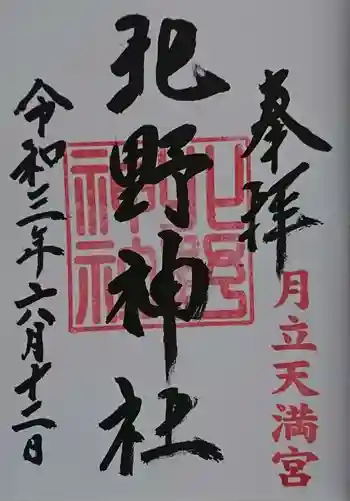 奉拝
月立天満宮
北野神社
令和三年六月十二日